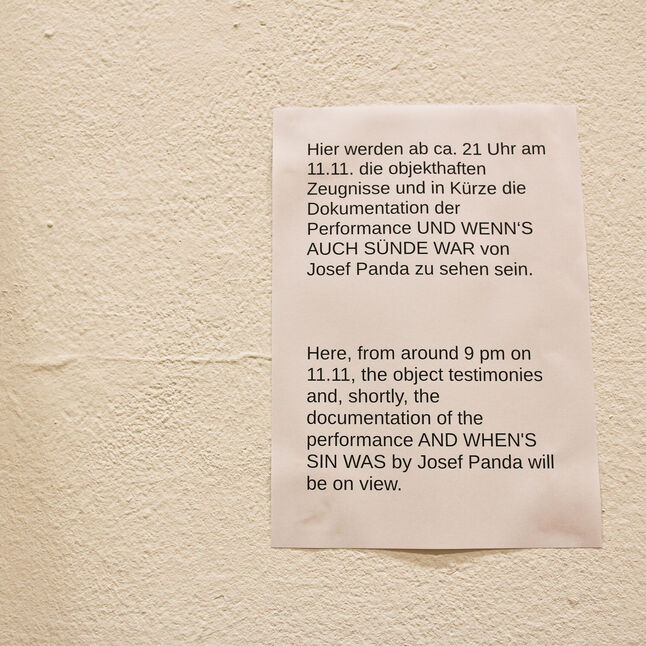 Hier werden ab ca. 21 Uhr am
11.11. die objekthaften
Zeugnisse und in Kürze die
Dokumentation der
Performance UND WENN‘S
AUCH SÜNDE WAR von
Josef Panda zu sehen sein.
Here, from around 9 pm on
11.11, the object testimonies
and, shortly, the
documentation of the
performance AND WHEN'S
SIN WAS by Josef Panda will
be on view.